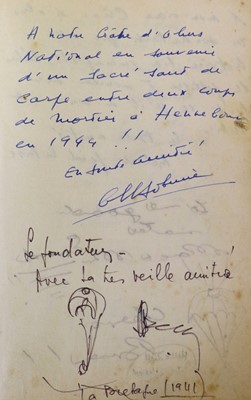 A notre Crâne d'obus
National en souvenir
d'un sacré saut de
Carpe entre deux coups
de mortier à Hennebont
en 1944 !!!
En toute amitié
Le fondateur -
Avec la très veille amitié
(1941)